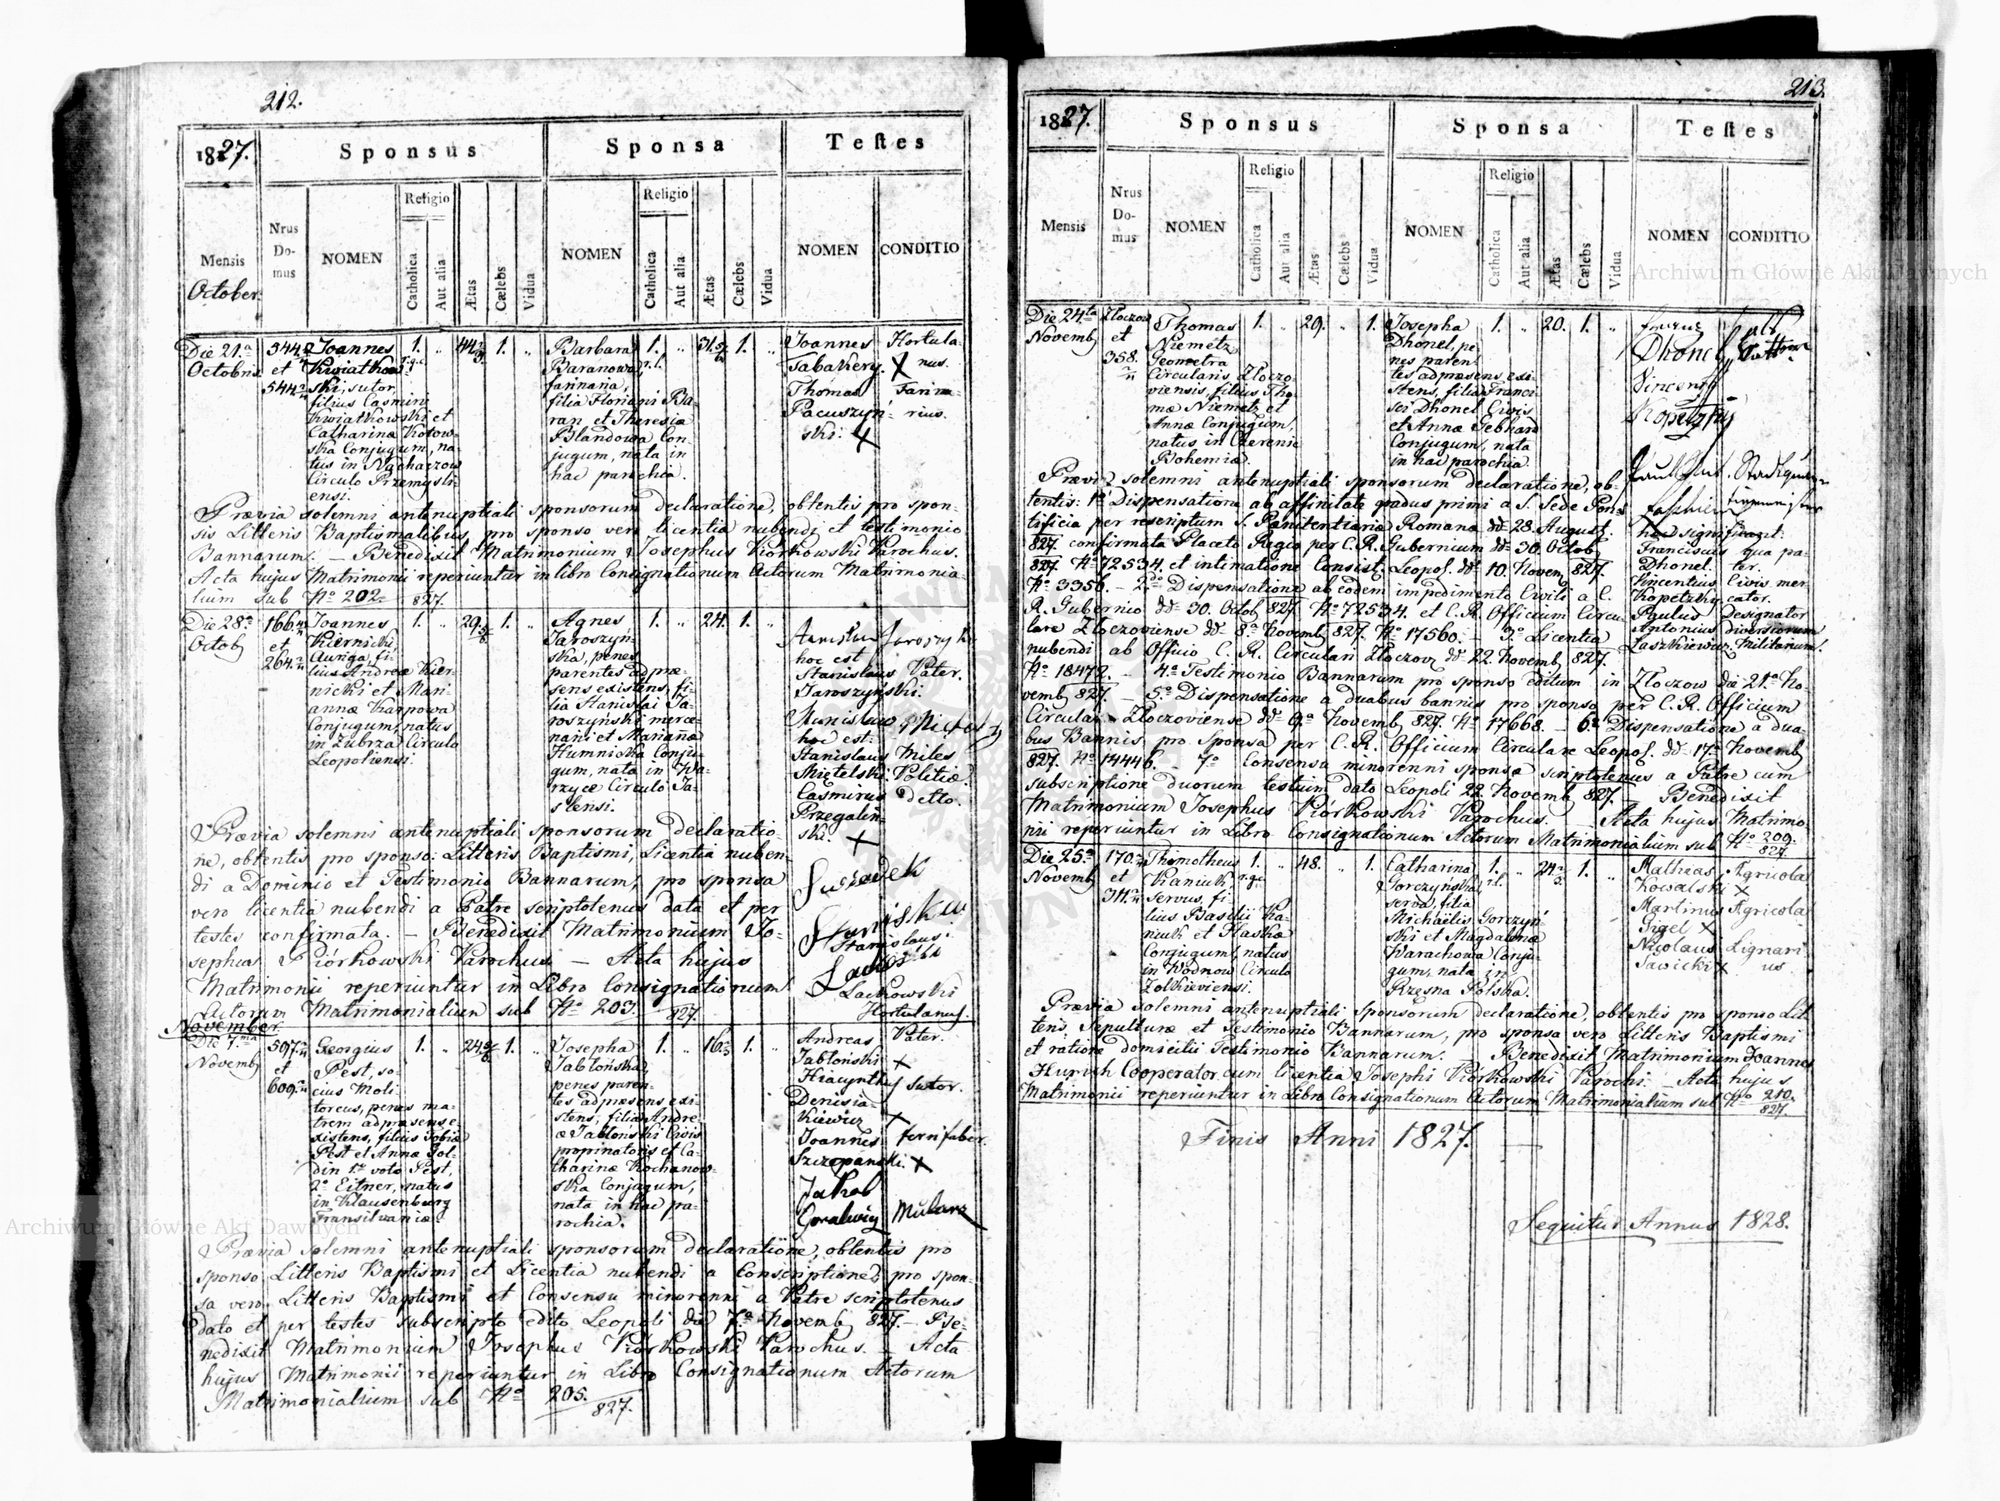 212.
1827.
Sponsus
Sponsa
Testes
Mensis
October.
Nrus Domus
NOMEN
Religio
Catholica
Aut alia
Ætas
Cælebs
Vidua
NOMEN
Religio
Catholica
Aut alia
Ætas
Cælebs
Vidua
NOMEN
CONDITIO
Die 21.a
Octobris
544.
et
544.
Joannes
Kwiatkow
ski, sutor
filius Casimiri
Kwiatkowski et
Catharinæ Kotow-
ska Conjugum, na-
tus in
Circulo Przemysli
ensi.
1. „ 44 1.
Barbara
Baranowa,
farinaria,
filia Floriani Ba-
ran et Theresiæ
Blandowa Con-
jugum, nata in
hac parochia.
1. „ 31. 1. „
Joannes
Tabakery.
Thomas
Pacuszyn-
ski.
Hortula
nus.
Farina-
rius.
Prævia solemni antenuptiali sponsorum declaratione, obtentis pro spon-
sis Litteris Baptismalibus, pro sponso vero licentia nubendi et testimonio
Bannarum. — Benedixit Matrimonium Josephus Piórkowski Parochus.
Acta hujus Matrimonii reperiuntur in libro Consignationum Actorum Matrimonia-
lium sub No 202. 827.
Die 28.a
Octob
166.
et
264.
Joannes
Kiernicki,
Auriga, fi-
lius Andreæ Kier-
nicki et Mari-
annæ Karpowa
Conjugum, natus
in Zubrza Circulo
Leopoliensi.
1. „ 29. 1.
Agnes
Jaroszyn-
ska, penes
parentes ad præ-
sens existens, fi-
lia Stanislai Ja-
roszyński merce-
narii et Mariannæ
Humniska Conju-
gum, nata in Wa-
rzyce Circulo Ja-
slensi.
1. „ 24. 1. „
hoc est
Stanislaus Pater.
Jaroszyński.
hoc est:
Stanislaus Miles
Mietelski Politiæ
Casimirus detto.
Przegalin-
ski.
Stanislaus
Lackowski
Hortulanus.
Prævia solemni antenuptiali sponsorum declaratio-
ne, obtentis pro sponso: Litteris Baptismi, Licentia nuben-
di a Dominio et Testimonio Bannarum, pro sponsa
vero licentia nubendi a Patre scriptotenus data et per
testes confirmata. — Benedixit Matrimonium Jo-
sephus Piórkowski Parochus — Acta hujus
Matrimonii reperiuntur in Libro Consignationum
Actorum Matrimonialium sub No 203. 827.
November.
Die 7.ma
Novemb
507.
et
609.
Georgius
Pest, so-
cius Moli-
toreus, penes ma-
trem ad præsens e-
xistens, filius Tobiæ
Pest et Annæ Gol-
din 1o voto Pest,
2o Eitner, natus
in Klausenburg
Transilvaniæ
1. „ 24 1. „
Josepha
Jabłońska,
penes paren-
tes ad præsens exi-
stens, filia Andre-
æ Jabłonski Civis
propinatoris et Ca-
tharinæ Kochanow-
ska Conjugum,
nata in hac pa-
rochia.
1. „ 16. 1. „
Andreas Pater.
Jabłoński
Hiacynthus sutor.
Denisia-
kiewicz
Joannes ferrifaber.
Szczepanski.
Jakob
Goralwicz Mularz
Prævia solemni antenuptiali sponsorum declaratione, obtentis pro
sponso Litteris Baptismi et Licentia nubendi a Conscriptione, pro spon-
sa vero Litteris Baptismi et Consensu minorenni a Patre scriptotenus
dato et per testes subscripto edito Leopoli dd 7.a Novemb 827. — Be-
nedixit Matrimonium Josephus Piórkowski Parochus. — Acta
hujus Matrimonii reperiuntur in Libro Consignationum Actorum
Matrimonialium sub No 205. 827.
213.
1827.
Sponsus
Sponsa
Testes
Mensis
Nrus Domus
NOMEN
Religio
Catholica
Aut alia
Ætas
Cælebs
Vidua
NOMEN
Religio
Catholica
Aut alia
Ætas
Cælebs
Vidua
NOMEN
CONDITIO
Die 24ta
Novemb
Zloczow
et
358.
Thomas
Niemetz
Geometra
Circularis Zloczo-
viensis, filius Tho-
mæ Niemetz et
Annæ Conjugum,
natus in
Bohemia.
1. „ 29. „ 1.
Josepha
Dhonel, pe-
nes paren-
tes ad præsens exi-
stens, filia Franci-
sci Dhonel Civis
et Annæ Gebhard
Conjugum, nata
in hac parochia.
1. „ 20. 1. „
Franz als
Dhonel Vatter
Vincenz
Kopetzky
hoc significant:
Franciscus qua pa-
Dhonel. ter.
Vincentius Civis mer-
Kopetzky cator.
Paulus Designator
Antonius diversorum
Laszkiewicz Militarium.
Prævia solemni antenuptiali sponsorum declaratione, ob-
tentis: 1o Dispensatione ab affinitate gradus primi a S. Sede Pon-
tificia per rescriptum S. Pænitentiariæ Romanæ dd 28. August.
827. confirmata Placeto Regio per C. R. Gubernium dd 30. Octob
827. No 72534. et intimatione Consist. Leopol. dd 10. Novem 827.
No 3356. — 2do Dispensatione ab eodem impedimento Civili a C.
R. Gubernio dd 30. Octob 827. No 72534. et C. R. Officium Circu-
lare Zloczoviense dd 8.a Novemb 827. No 17560. — 3o Licentia
nubendi ab Officio C. R. Circulari Zloczov. dd 22. Novemb 827.
No 18472. — 4o Testimonio Bannarum pro sponso editum in Zloczow die 21.a No-
vemb 827. — 5o Dispensatione a duabus bannis pro sponso per C. R. Officium
Circulare Zloczoviense dd 9.a Novemb 827. No 17668. — 6o Dispensatione a dua-
bus Bannis pro Sponsa per C. R. Officium Circulare Leopol. dd 17.a Novemb
827. No 14446. — 7o Consensu minorenni sponsæ scriptotenus a Patre cum
subscriptione duorum testium dato Leopoli 22. Novemb 827. Benedixit
Matrimonium Josephus Piórkowski Parochus. — Acta hujus Matrimo-
nii reperiuntur in Libro Consignationum Actorum Matrimonialium sub No 209. 827.
Die 25.a
Novemb
170.
et
311.
Thimotheus
Kaniuk,
servus, fi-
lius Basilii Ka-
niuk et Haskæ
Conjugum, natus
in Wodnow Circulo
Zolkieviensi.
1. „ 48. „ 1.
Catharina
Gorczyńska,
serva, filia
Michaelis Gorczyń-
ski et Magdalenæ
Warachowa Conju-
gum, nata in
Rzęsna Polska.
1. „ 24 1. „
Matheas Agricola
Kowalski
Martinus Agricola
Gigel
Nicolaus Lignari-
Sawicki us.
Prævia solemni antenuptiali Sponsorum declaratione, obtentis pro sponso Lit-
teris Sepulturæ et Testimonio Bannarum, pro sponsa vero Litteris Baptismi
et ratione domicilii Testimonio Bannarum. — Benedixit Matrimonium Joannes
Hurich Cooperator cum licentia Josephi Piórkowski Parochi. — Acta hujus
Matrimonii reperiuntur in Libro Consignationum Actorum Matrimonialium sub No 210. 827.
Finis Anni 1827.
Sequitur Annus 1828.
Archiwum Główne Akt Dawnych
Archiwum Główne Akt Dawnych